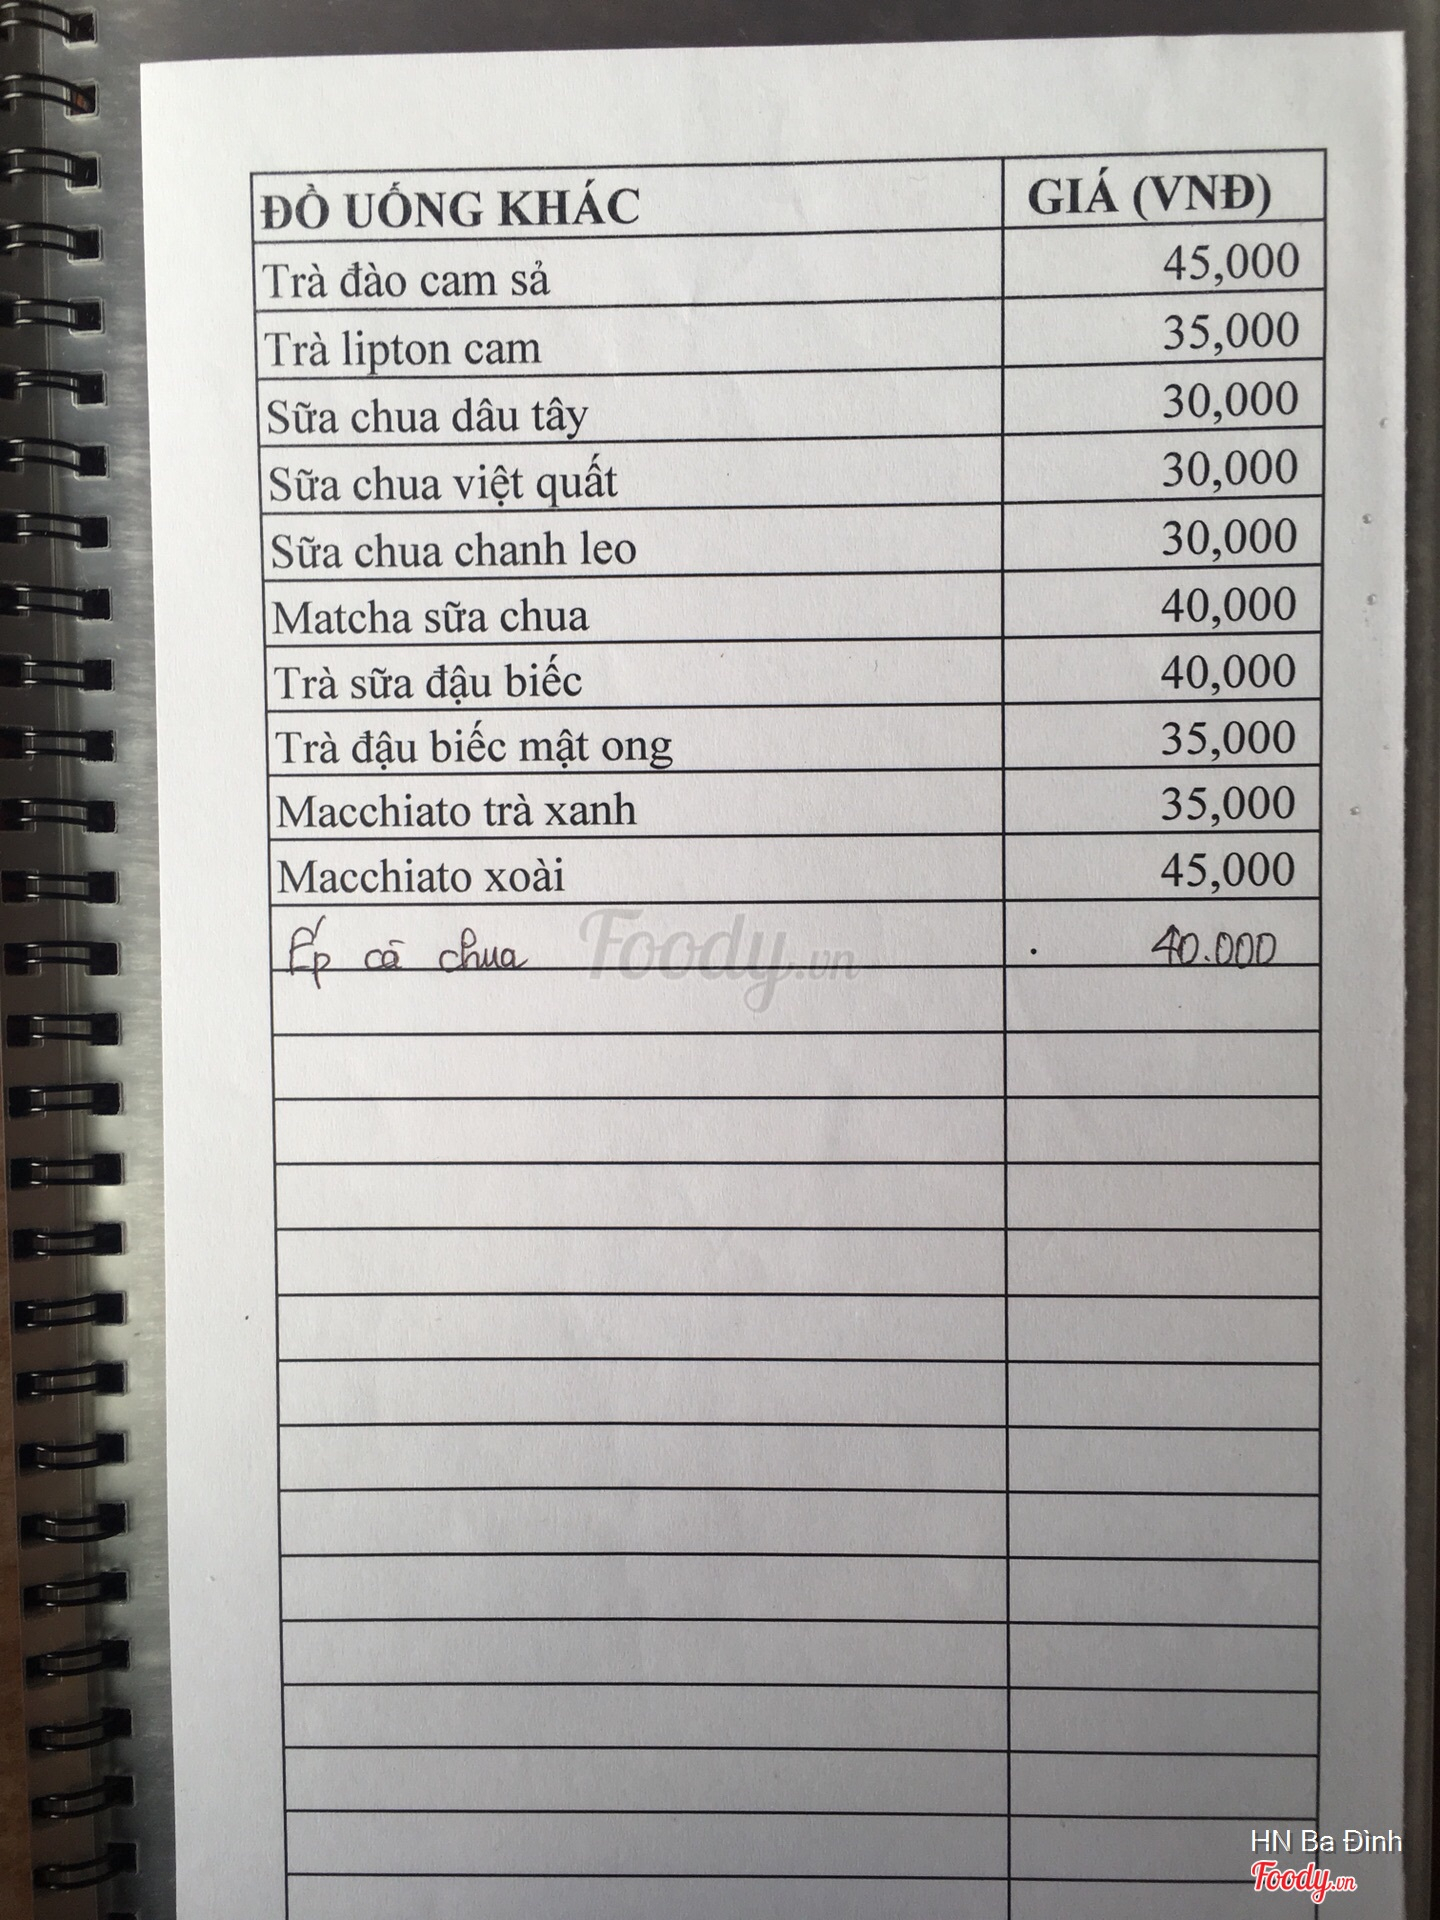 ĐỒ UỐNG KHÁC GIÁ (VNĐ)
Trà đào cam sả 45,000
Trà lipton cam 35,000
Sữa chua dâu tây 30,000
Sữa chua việt quất 30,000
Sữa chua chanh leo 30,000
Matcha sữa chua 40,000
Trà sữa đậu biếc 40,000
Trà đậu biếc mật ong 35,000
Macchiato trà xanh 35,000
Macchiato xoài 45,000
Ép cà chua 40.000
Foody.vn
HN Ba Đình
Foody.vn